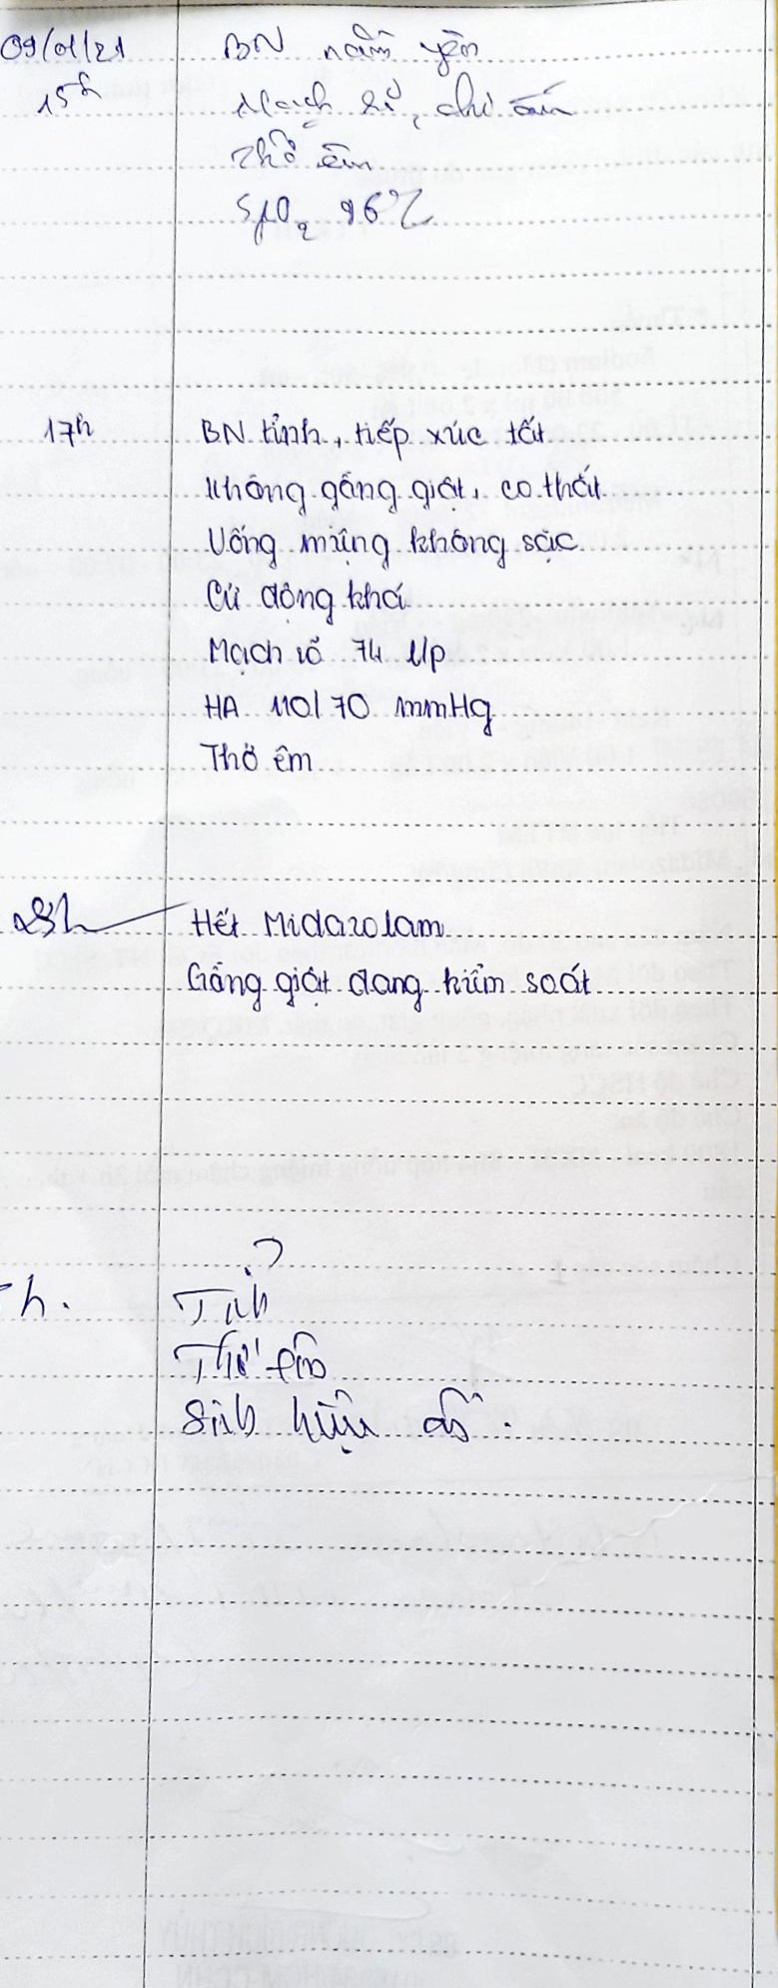 09/01/21 BN nằm yên
15h Mạch rõ, chi ấm
Thở êm
SpO2 96%
17h BN tỉnh, tiếp xúc tốt
Không gồng giật, co thắt
Uống miệng không sặc
Cử động khá
Mạch rõ 74 l/p
HA 110/70 mmHg
Thở êm
Hết Midazolam
Gồng giật đang kiểm soát
h. Tỉnh
Thở êm
Sinh hiệu ổn.